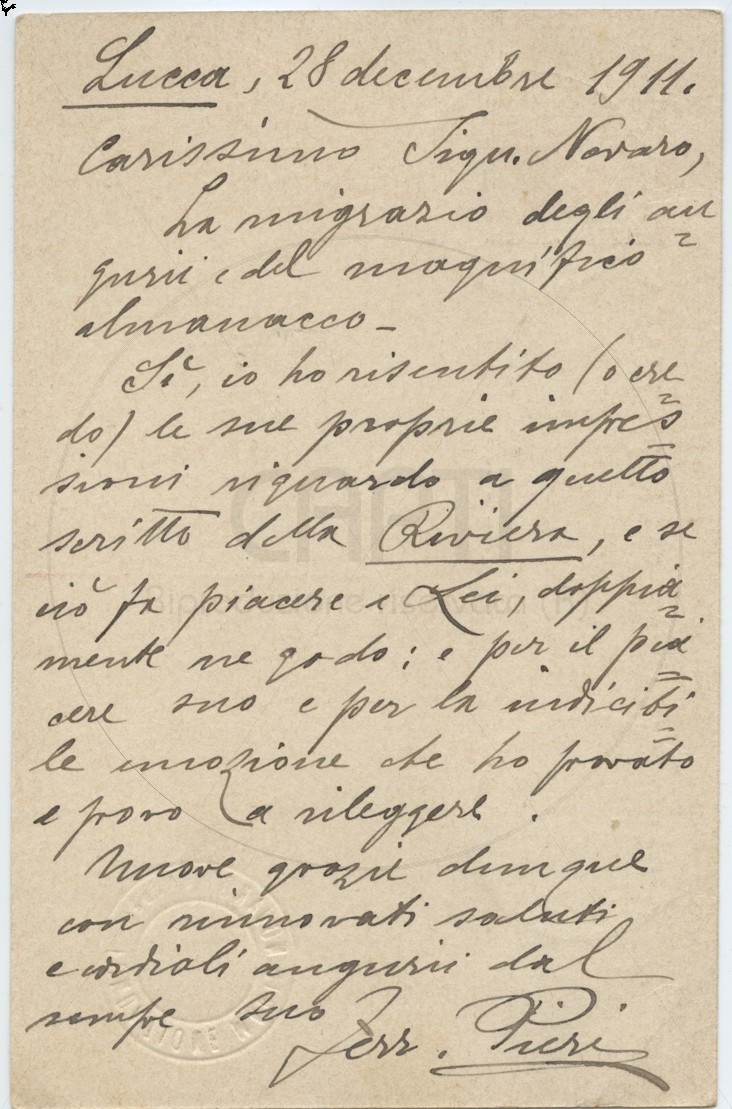 Lucca, 28 decembre 1911.
Carissimo Sign. Novaro,
La ringrazio degli au=
gurii e del magnifico
almanacco_
Sì, io ho risentito (o cre=
do) le sue proprie impres=
sioni riguardo a quello
scritto della Riviera, e se
ciò fa piacere a Lei, doppia=
mente ne godo: e per il pia=
cere suo e per la indicibi=
le emozione che ho provato
e provo a rileggere.
Nuove grazie dunque
con rinnovati saluti
e cordiali augurii dal
sempre suo
Ferr. Pieri